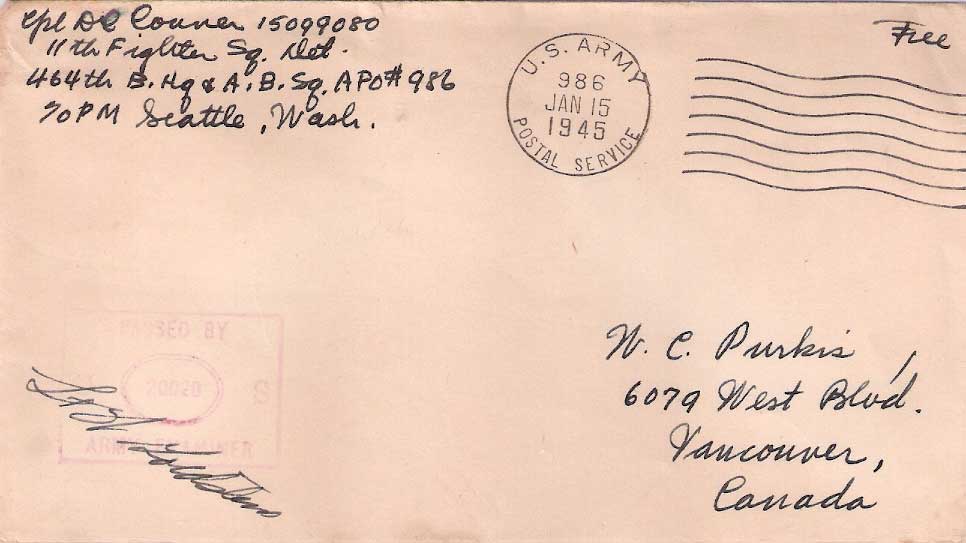 Cpl DC Conner 15099080
11th Fighter Sq. Det.
464th B. Hq & A. B. Sq. APO# 986
%PM Seattle, Wash.
U.S. ARMY
986
JAN 15
1945
POSTAL SERVICE
Free
PASSED BY
20020
S
ARMY EXAMINER
W. C. Purkis,
6079 West Blvd.
Vancouver,
Canada